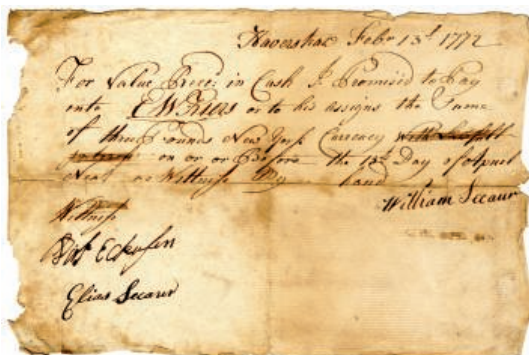 Haverstrac Febr 13th 1772
For Value Recc: in Cash I Promised to Pay
unto or to his assigns the Sume
of three Pounds New York Currency
on or or Before the 13th Day of
Next as Wittness My hand
William Secaur
Wittness
Elias Secaur